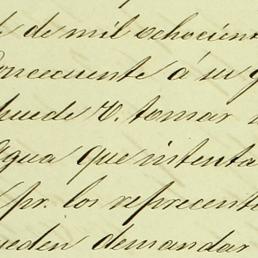 de mil ochocient
Consecuente á su
puede V. tomar
agua que intenta
pr. los represent
ueden demandar